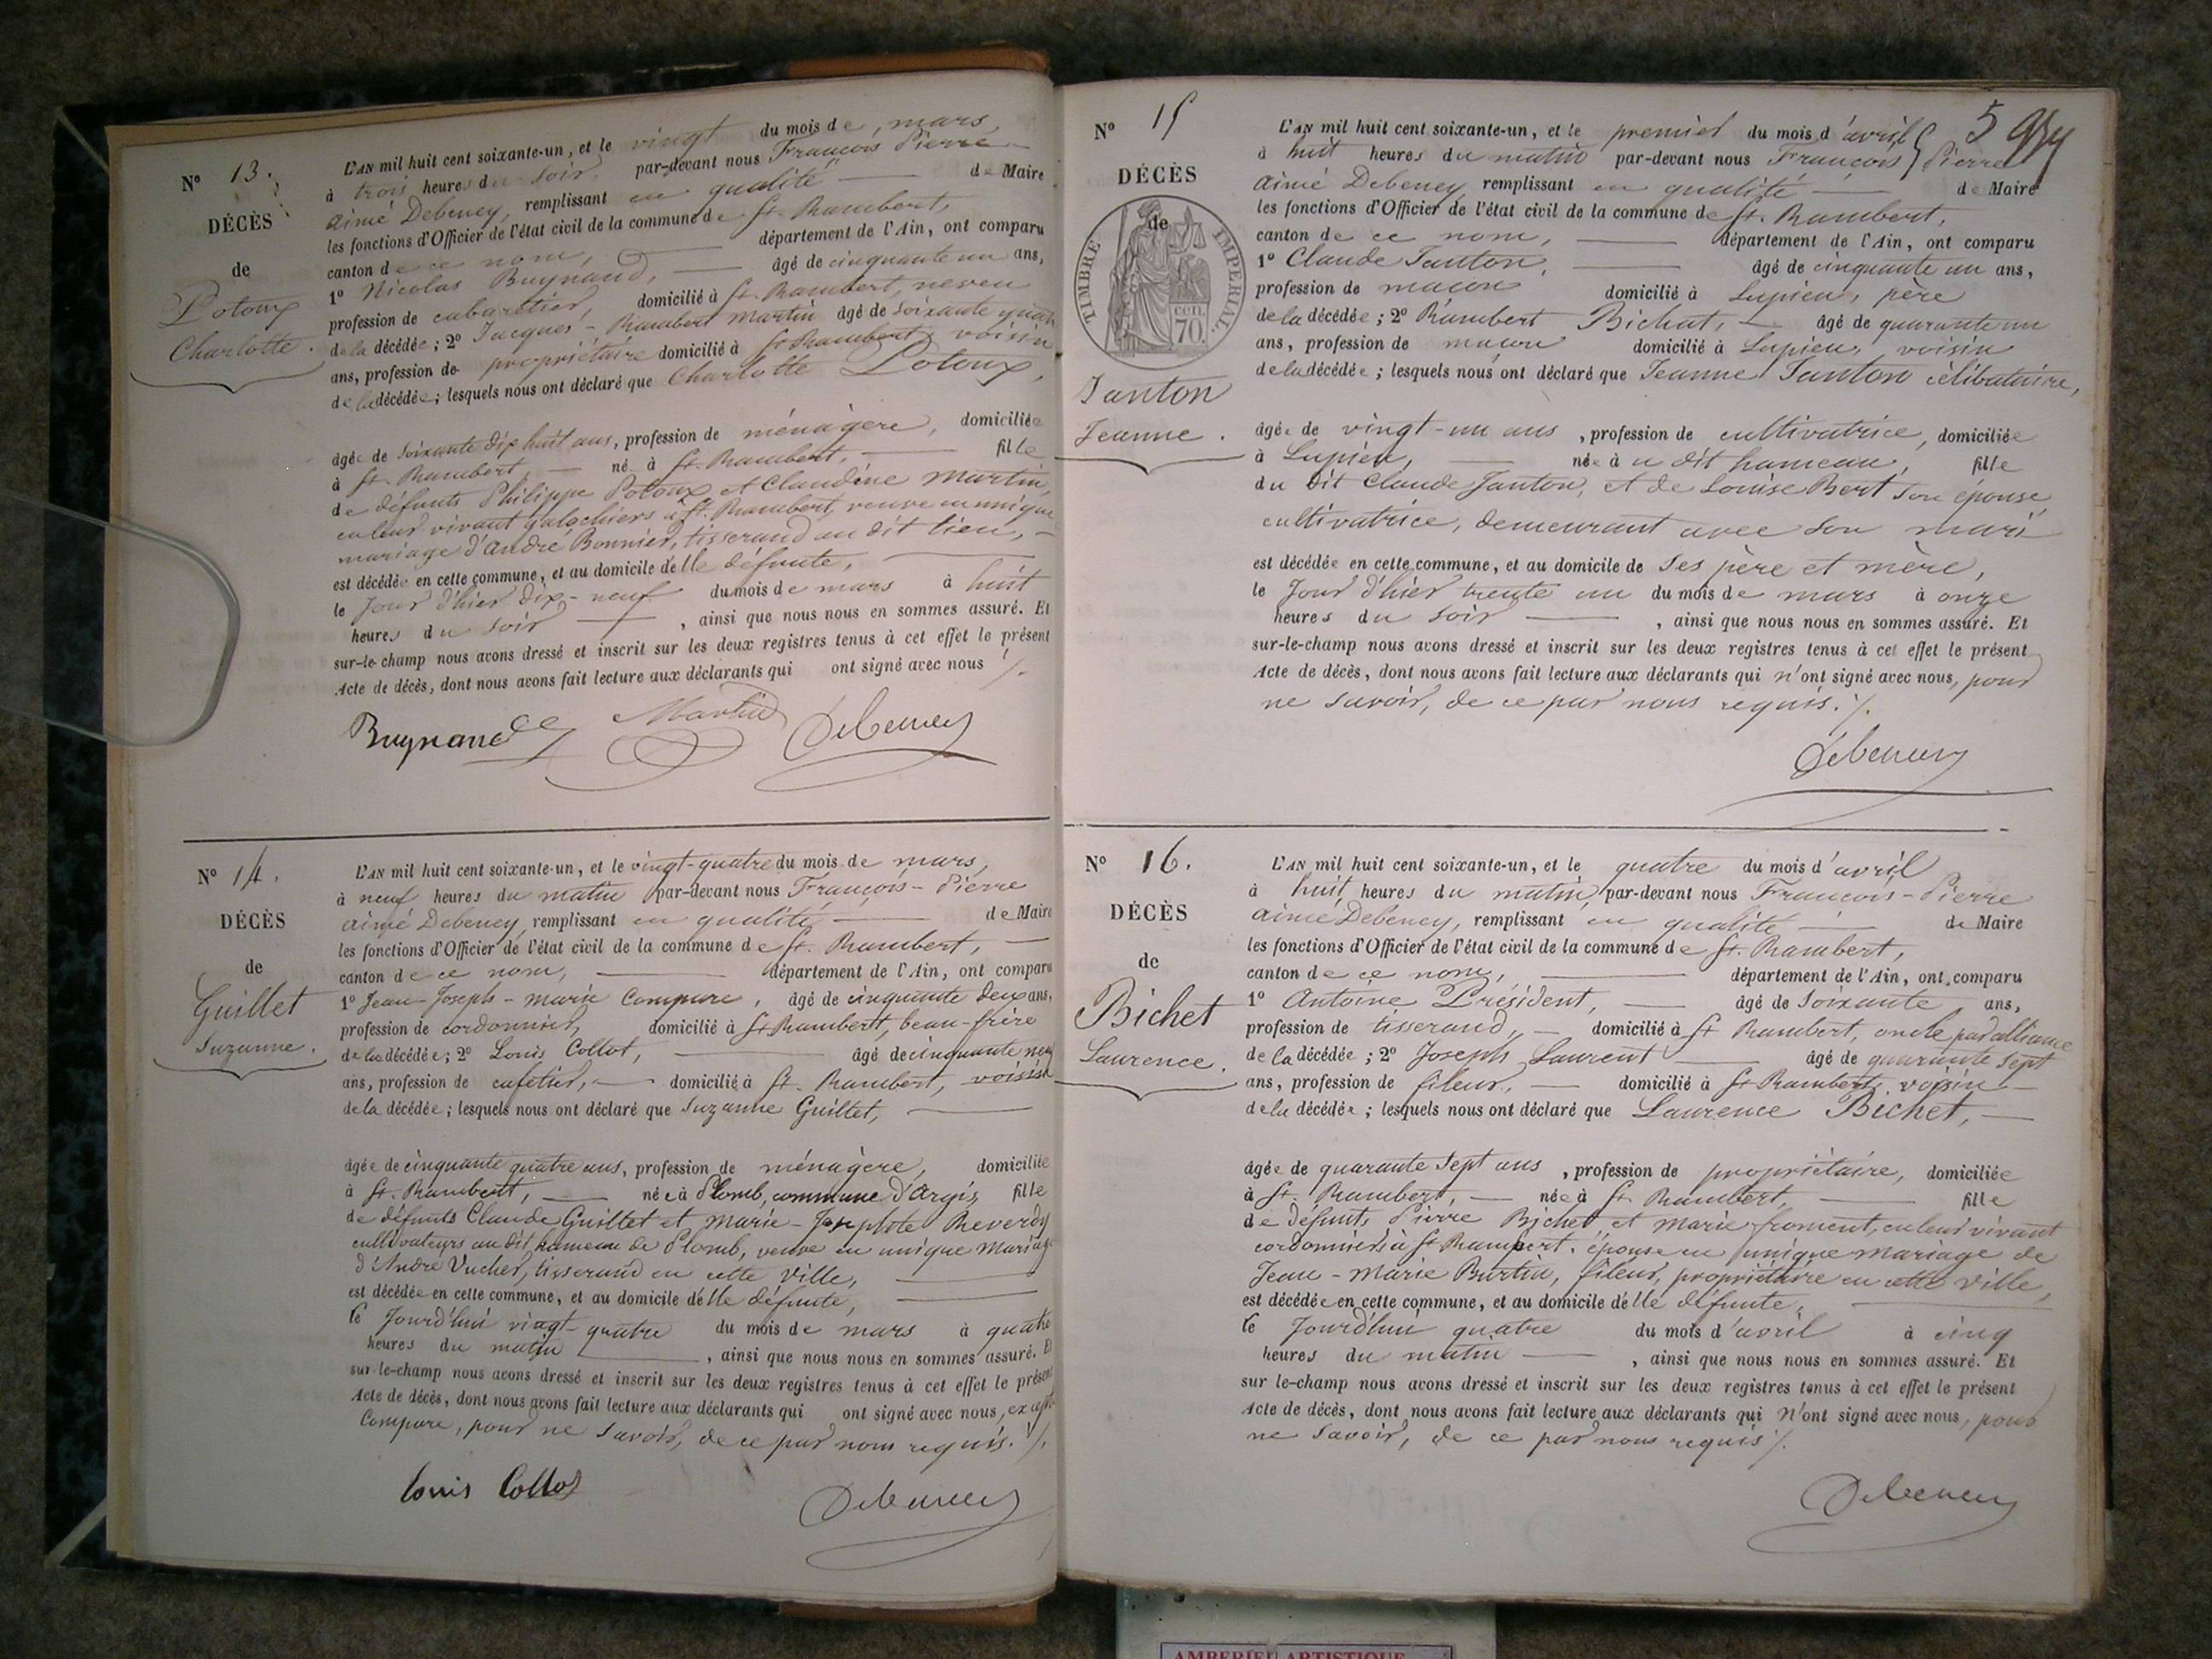 N° 13.
DÉCÈS
de
Potoux
Charlotte.
L'AN mil huit cent soixante-un, et le vingt du mois de mars,
à trois heures du soir par-devant nous François Pierre
Aimé Debeney, remplissant en qualité de Maire
les fonctions d'Officier de l'état civil de la commune de St. Rambert,
canton de ce nom, département de l'Ain, ont comparu
1° Nicolas Buynand, âgé de cinquante un ans,
profession de cabaretier, domicilié à St. Rambert, neveu
de la décédée; 2° Jacques-Rambert Martin âgé de soixante quatre
ans, profession de propriétaire domicilié à St Rambert, voisin
de la décédée; lesquels nous ont déclaré que Charlotte Potoux,
âgée de soixante dix huit ans, profession de ménagère, domiciliée
à St. Rambert, né à St. Rambert, fille
de défunts Philippe Potoux et Claudine Martin,
en leur vivant galochiers à St. Rambert, veuve en unique
mariage d'André Bonnier, tisserand au dit lieu,
est décédée en cette commune, et au domicile d'elle défunte,
le jour d'hier dix-neuf du mois de mars à huit
heures du soir, ainsi que nous nous en sommes assuré. Et
sur-le-champ nous avons dressé et inscrit sur les deux registres tenus à cet effet le présent
Acte de décès, dont nous avons fait lecture aux déclarants qui ont signé avec nous ./.
Buynand Martin Debeney
N° 14.
DÉCÈS
de
Guillet
Suzanne.
L'AN mil huit cent soixante-un, et le vingt-quatre du mois de mars,
à neuf heures du matin par-devant nous François-Pierre
Aimé Debeney, remplissant en qualité de Maire
les fonctions d'Officier de l'état civil de la commune de St. Rambert,
canton de ce nom, département de l'Ain, ont comparu
1° Jean-Joseph-Marie Compare, âgé de cinquante deux ans,
profession de cordonnier, domicilié à St Rambert, beau-frère
de la décédée; 2° Louis Collot, âgé de cinquante neuf
ans, profession de cafetier, domicilié à St. Rambert, voisin
de la décédée; lesquels nous ont déclaré que Suzanne Guillet,
âgée de cinquante quatre ans, profession de ménagère, domiciliée
à St. Rambert, née à Plomb, commune d'Argis, fille
de défunts Claude Guillet et Marie-Josephte Reverdy
cultivateurs au dit hameau de Plomb, veuve en unique mariage
d'André Vucher, tisserand en cette ville,
est décédée en cette commune, et au domicile d'elle défunte,
le jourd'hui vingt-quatre du mois de mars à quatre
heures du matin, ainsi que nous nous en sommes assuré. Et
sur-le-champ nous avons dressé et inscrit sur les deux registres tenus à cet effet le présent
Acte de décès, dont nous avons fait lecture aux déclarants qui ont signé avec nous, excepté
Compare, pour ne savoir, de ce par nous requis. ./.
Louis Collot Debeney
5
N° 15
DÉCÈS
de
TIMBRE IMPÉRIAL.
CEN. 70.
Janton
Jeanne.
L'AN mil huit cent soixante-un, et le premier du mois d'avril
à huit heures du matin par-devant nous François Pierre
Aimé Debeney, remplissant en qualité de Maire
les fonctions d'Officier de l'état civil de la commune de St. Rambert,
canton de ce nom, département de l'Ain, ont comparu
1° Claude Janton, âgé de cinquante un ans,
profession de maçon domicilié à Lupieu, père
de la décédée; 2° Rambert Bichat, âgé de quarante un
ans, profession de maçon domicilié à Lupieu, voisin
de la décédée; lesquels nous ont déclaré que Jeanne Janton célibataire,
âgée de vingt-un ans, profession de cultivatrice, domiciliée
à Lupieu, née à u dit hameau, fille
du dit Claude Janton, et de Louise Bert son épouse,
cultivatrice, demeurant avec son mari
est décédée en cette commune, et au domicile de ses père et mère,
le jour d'hier trente un du mois de mars à onze
heures du soir, ainsi que nous nous en sommes assuré. Et
sur-le-champ nous avons dressé et inscrit sur les deux registres tenus à cet effet le présent
Acte de décès, dont nous avons fait lecture aux déclarants qui n'ont signé avec nous, pour
ne savoir, de ce par nous requis. ./.
Debeney
N° 16.
DÉCÈS
de
Bichet
Laurence.
L'AN mil huit cent soixante-un, et le quatre du mois d'avril
à huit heures du matin, par-devant nous François-Pierre
Aimé Debeney, remplissant en qualité de Maire
les fonctions d'Officier de l'état civil de la commune de St. Rambert,
canton de ce nom, département de l'Ain, ont comparu
1° Antoine Président, âgé de soixante ans,
profession de tisserand, domicilié à St Rambert, oncle par alliance
de la décédée; 2° Joseph Laurent âgé de quarante sept
ans, profession de fileur, domicilié à St Rambert, voisin
de la décédée; lesquels nous ont déclaré que Laurence Bichet,
âgée de quarante sept ans, profession de propriétaire, domiciliée
à St. Rambert, née à St. Rambert, fille
de défunts Pierre Bichet et Marie Froment, en leur vivant
cordonniers à St Rambert. épouse en unique mariage de
Jean-Marie Burtin, fileur, propriétaire en cette ville,
est décédée en cette commune, et au domicile d'elle défunte,
le jourd'hui quatre du mois d'avril à cinq
heures du matin, ainsi que nous nous en sommes assuré. Et
sur le-champ nous avons dressé et inscrit sur les deux registres tenus à cet effet le présent
Acte de décès, dont nous avons fait lecture aux déclarants qui n'ont signé avec nous, pour
ne savoir, de ce par nous requis ./.
Debeney
AMBERIEU ARTISTIQUE